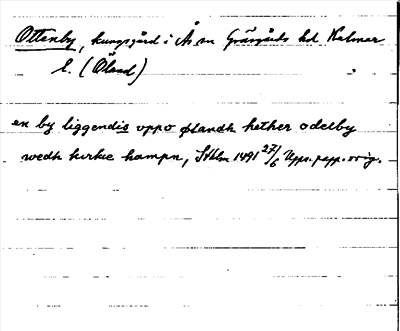 Ottenby, kungsgård i Ås sn Gräsgårds hd Kalmar
l. (Öland)
en by liggendis vppo ølandh hether odelby
wedh kirkie hampn, Sthlm 1491 27/6 Upps. papp. orig.